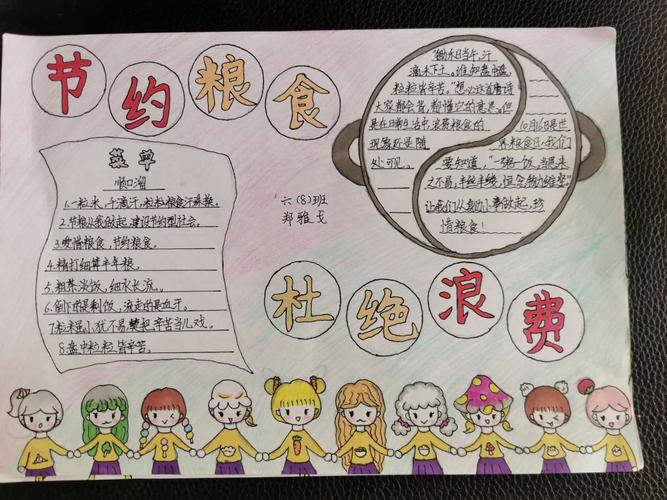 节约粮食
顺口溜
1.一粒米,千滴汗,粒粒粮食汗来换。
2.节粮从我做起 建设节约型社会。
3.爱惜粮食,节约粮食。
4.精打细算半年粮。
5.粗茶淡饭,细水长流。
6.倒下的是剩饭,流走的是血汗。
7.粒米虽小犹不易 辛苦当儿戏。
8.盘中粒粒皆辛苦。
六(8)班
郑雅戈
"锄禾日当午,汗
滴禾下土。谁知盘中
粒粒皆辛苦。"想必这首唐诗
大家都会背,都懂它的意思。但
是在日常生活中,浪费粮食的
现象还是随
处可见。
10月16日是世
界粮食日,我们
要知道,"一粥一饭,当思来
之不易,半丝半缕,恒念物力维艰"
让我们从身边小事做起,珍
惜粮食!
杜绝浪费